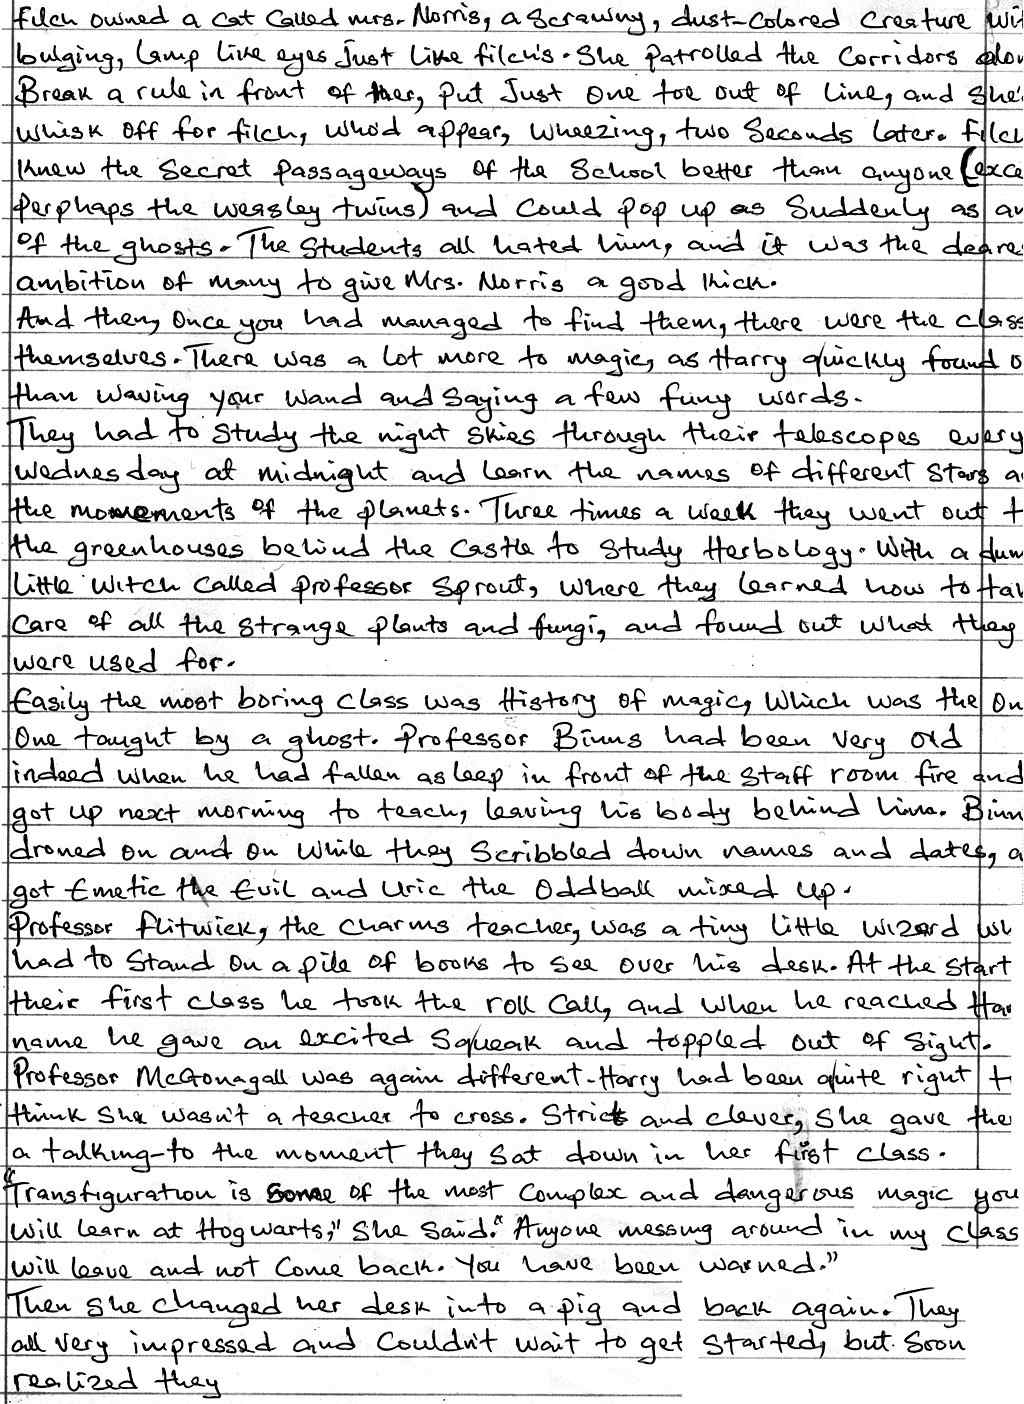 Filch owned a cat called mrs. Norris, a scrawny, dust-colored creature wit
bulging, lamp like eyes Just like filch's. She patrolled the Corridors alon
Break a rule in front of her, put Just one toe out of line, and she'
whisk off for filch, who'd appear, wheezing, two seconds later. filch
knew the secret passageways of the School better than anyone (exce
perphaps the weasley twins) and could pop up as suddenly as an
of the ghosts. The students all hated him, and it was the deare
ambition of many to give Mrs. Norris a good kick.
And then, once you had managed to find them, there were the class
themselves. There was a lot more to magic, as Harry quickly found o
than waving your wand and saying a few funy words.
They had to study the night skies through their telescopes every
wednesday at midnight and learn the names of different stars a
the momements of the planets. Three times a week they went out t
the greenhouses behind the castle to study Herbology. With a dum
little witch called professor sprout, where they learned how to tak
care of all the strange plants and fungi, and found out what they
were used for.
Easily the most boring class was History of magic, which was the on
one taught by a ghost. Professor Binns had been very old
indeed when he had fallen asleep in front of the staff room fire and
got up next morning to teach, leaving his body behind him. Binn
droned on and on while they scribbled down names and dates, a
got Emetic the Evil and Uric the Oddball mixed up.
Professor flitwick, the charms teacher, was a tiny little wizard wh
had to stand on a pile of books to see over his desk. At the start
their first class he took the roll call, and when he reached Har
name he gave an excited squeak and toppled out of sight.
Professor McGonagall was again different-Harry had been quite right t
think she wasn't a teacher to cross. Strict and clever, she gave the
a talking-to the moment they sat down in her first class.
"Transfiguration is some of the most complex and dangerous magic you
will learn at Hogwarts," she said." Anyone messng around in my class
will leave and not come back. You have been warned."
Then she changed her desk into a pig and back again. They
all very impressed and couldn't wait to get started, but soon
realized they